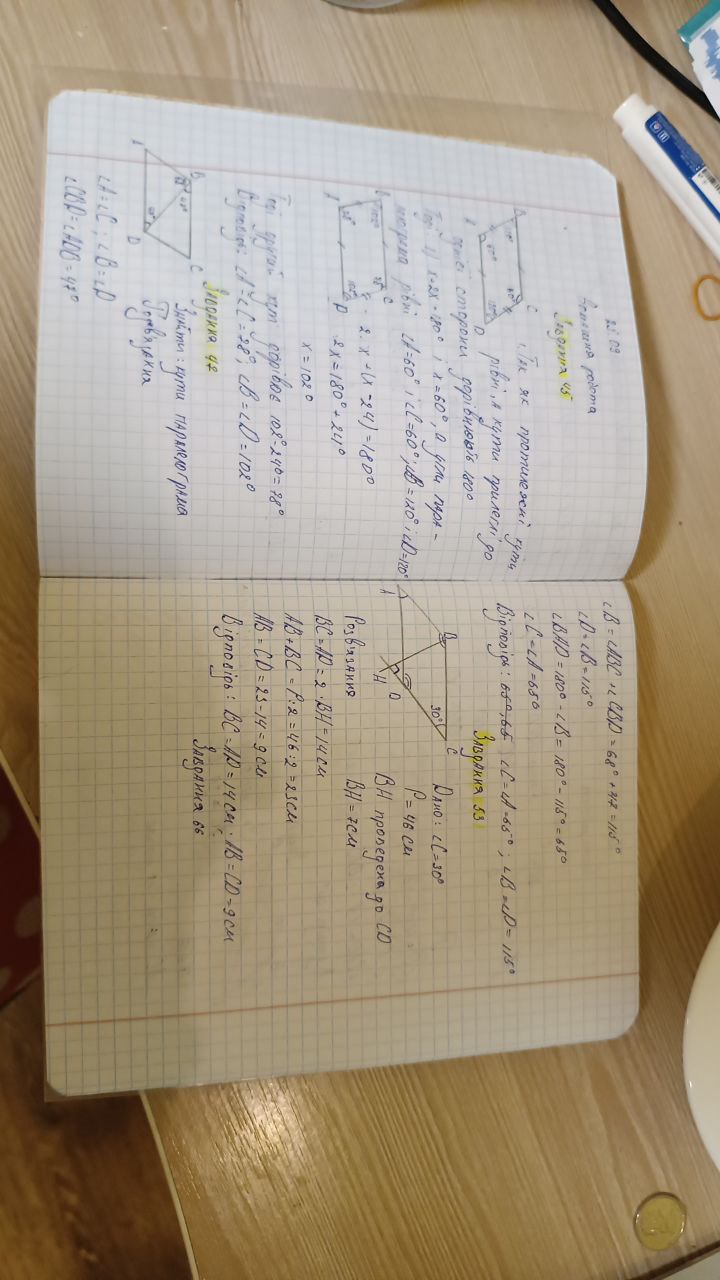 22 09
Домашня робота
Завдання 45
1. Так як протилежні кути
рівні, а кути прилеглі до
однієї сторони дорівнюють 180°
Тоді 1) x+2x=180° і x=60°, а
рівні ∠A=60° і ∠C=60°; ∠B=120° і ∠D=120°
2. x+(x-24)=180°
2x=180°+24°
x=102°
Тоді другий кут дорівнює 102°-24°=78°
Відповідь: ∠A=∠C=78°; ∠B=∠D=102°
Завдання 47
Знайти: кути паралелограма
∠A=∠C; ∠B=∠D
∠CBD=∠ADB=47°
A
B
C
D
∠B=∠ABC+∠CBD=68°+47=115°
∠D=∠B=115°
∠BAD=180°-∠B=180°-115°=65°
∠C=∠A=65°
Відповідь: ∠C=∠A=65°; ∠B=∠D=115°
Завдання 53
A
B
C
D
H
30°
Дано: ∠C=30°
P=46 см
BH проведена до CD
BH=7см
Розв'язання
BC=AD=2·BH=14см
AB+BC=P:2=46:2=23см
AB=CD=23-14=9см
Відповідь: BC=AD=14см; AB=CD=9см
Завдання 66